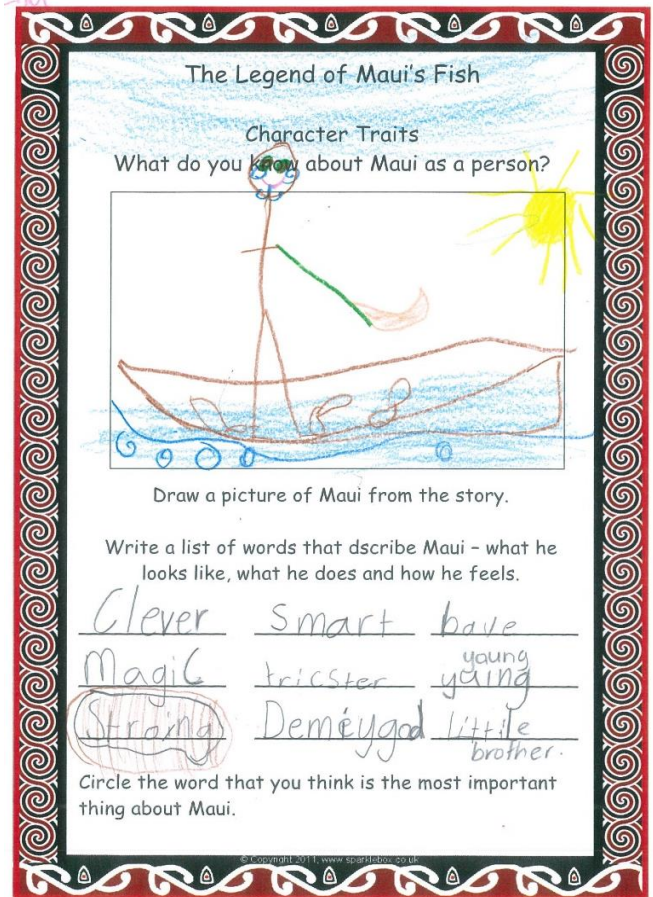 The Legend of Maui's Fish
Character Traits
What do you know about Maui as a person?
Draw a picture of Maui from the story.
Write a list of words that dscribe Maui – what he
looks like, what he does and how he feels.
Clever Smart bave
Magic tricster yaung
yuing
Stroing Demeygod little
brother.
Circle the word that you think is the most important
thing about Maui.
© Copyright 2011, www.sparklebox.co.uk